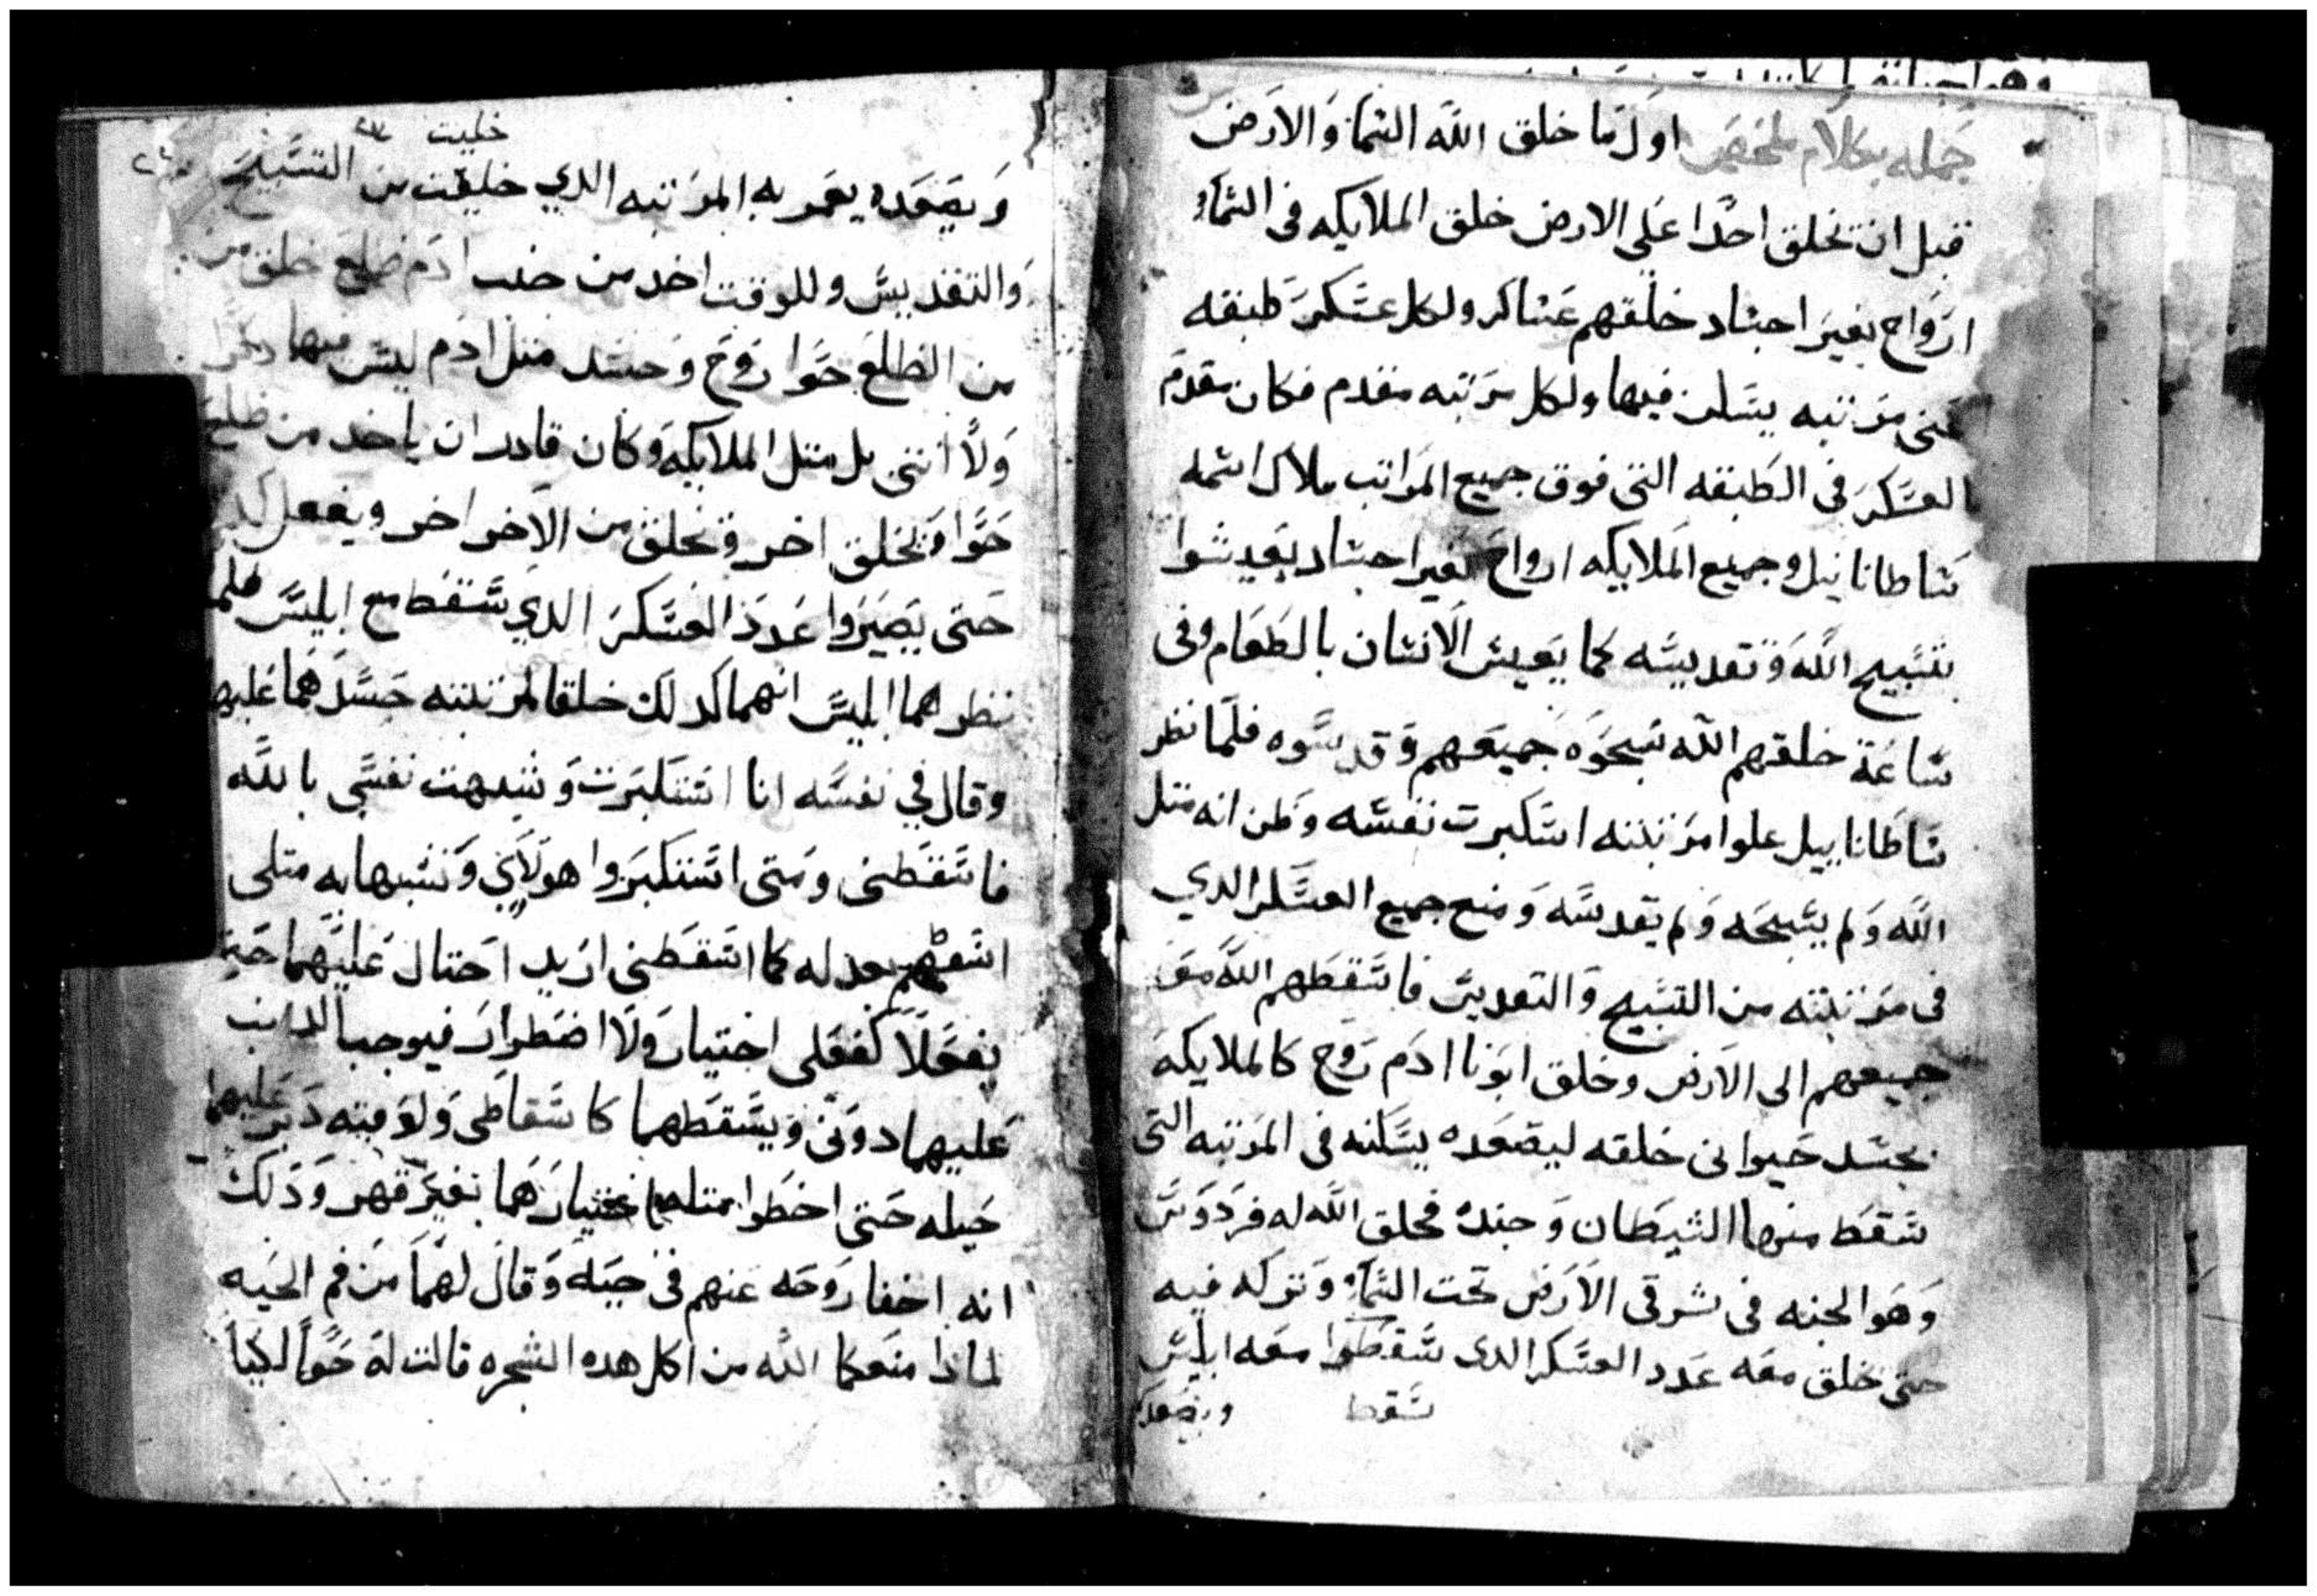 جمله بكلام ملخص اول ما خلق الله السما والارض
قبل ان تخلق احدا على الارض خلق الملايكه فى السماء
ارواح بغير اجساد خلقهم عساكر ولكل عسكر طبقه
عنى مرتبه يسكن فيها ولكل مرتبه مقدم فكان مقدم
العسكر فى الطبقه التى فوق جميع المراتب ملاك اسمه
ساطانايل وجميع الملايكه ارواح بغير اجساد يعيشوا
بتسبيح الله وتقديسه كما يعيش الانسان بالطعام وفى
ساعة خلقهم الله سبحوه جميعهم وقدسوه فلما نظر
ساطاناييل علوا مرتبته استكبرت نفسه وظن انه متل
الله ولم يسبحه ولم يقدسه ومنع جميع العسكر الدي
فى مرتبته من التسبيح والتقديس فاسقطهم الله معه
جميعهم الى الارض وخلق ابونا ادم روح كالملايكه
بجسد حيوانى خلقه ليصعده يسكنه فى المرتبه التى
سقط منها الشيطان وجنده فخلق الله له فردوس
وهو الجنه فى شرقى الارض تحت السماء وتركه فيه
حتى يخلق معه عدد العسكر الدى سقطوا معه ابليس
سقط ويصعده
خليت
ويصعده يعمر به المرتبه الدي خليت من التسبيح
والتقديس وللوقت اخد من جنب ادم ضلع خلق من
من الضلع حوا روح وجسد متل ادم ليس فيها دكرا
ولا انتى بل متل الملايكه وكان قادر ان ياخد من ضلع
حوا ويخلق اخر ويخلق من الاخر اخر ويفعل كدلك
حتى يصيروا عدد العسكر الدي سقط مع ابليس فلما
نظرهما ابليس انهما كدلك خلقا لمرتبته حسدهما عليها
وقال في نفسه انا استكبرت وشبهت نفسي بالله
فاسقطنى ومتى استكبروا هولاي وتشبها به متلى
اسقطهم بعدله كما اسقطنى اريد احتال عليهما حتى
يفعلا كفعلى اختيار ولا اضطرار فيوجبا الدنب
عليهما دونى ويسقطهما كاسقاطى ولوقته دبر عليهما
حيله حتى اخطوا متله باختيارهما بغير قهر ودلك
انه اخفا روحه عنهم فى حيه وقال لهما من فم الحيه
لمادا منعكما الله من اكل هده الشجره قالت له حوا لكيا